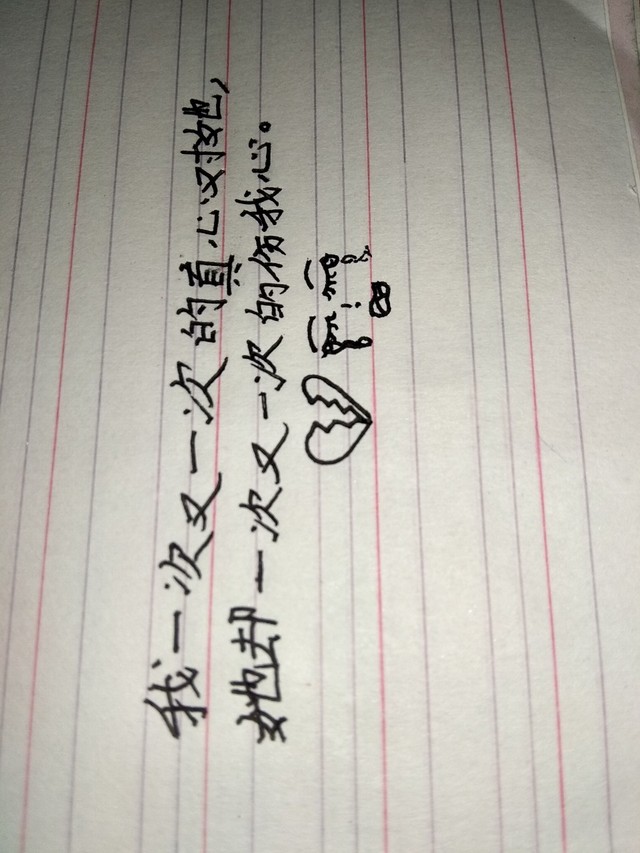 我一次又一次的真心对她,
她却一次又一次的伤我心。